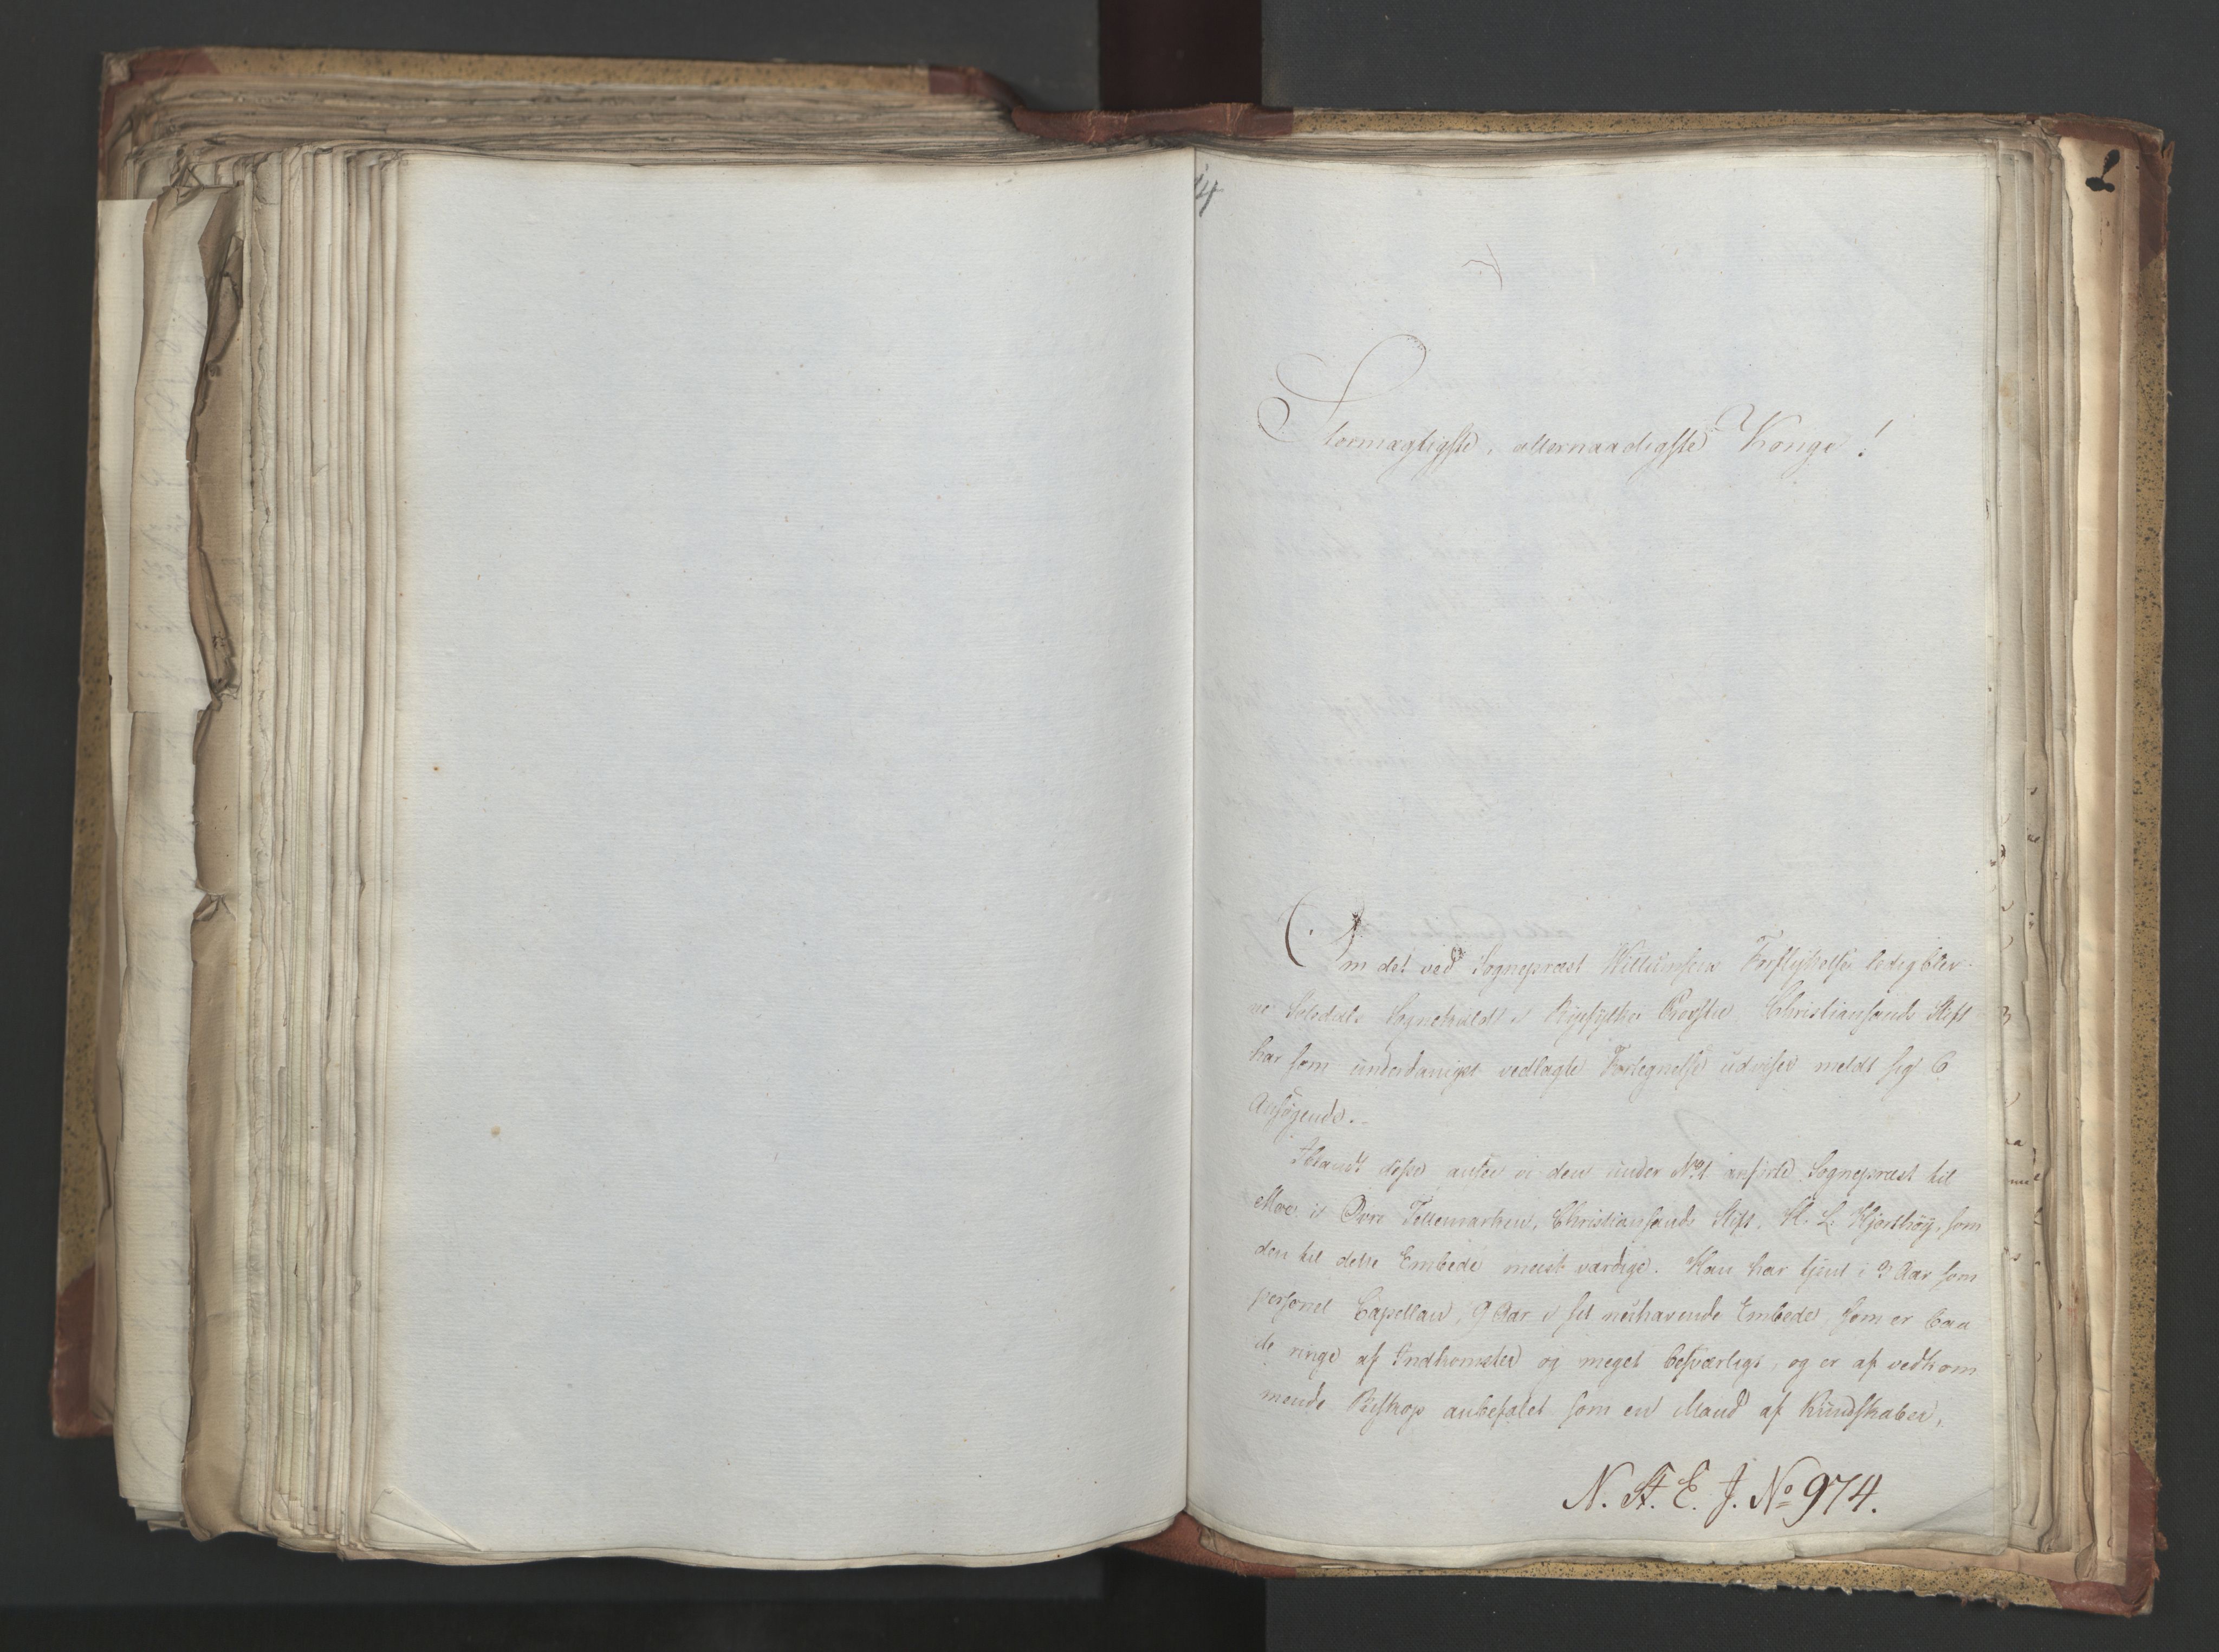 Stormægtigste, allernaadigste Konge!
Om det ved Sognepræst Willumsens Forflyttelse ledigblev-
ne Sognekald i Ryefylke Provstie Christiansands Stift
har som underdanigst vedlagte Fortegnelse udviser meldt sig 6
Ansøgende.
Iblandt disse ansee vi den under No 1 anførte Sognepræst til
Moe i Øvre Tellemarken, Christiansands Stift, H. L. Hjorthøy, som
den til dette Embede meest værdige. Han har tjent i 9 Aar som
personel Capellan, 9 Aar i sit nuhavende Embede, som er baa
de ringe af Indkomster og meget besværligt, og er af vedkom
mende Biskop anbefalet som en Mand af Kundskaber,
N. St. E. J. No 974.